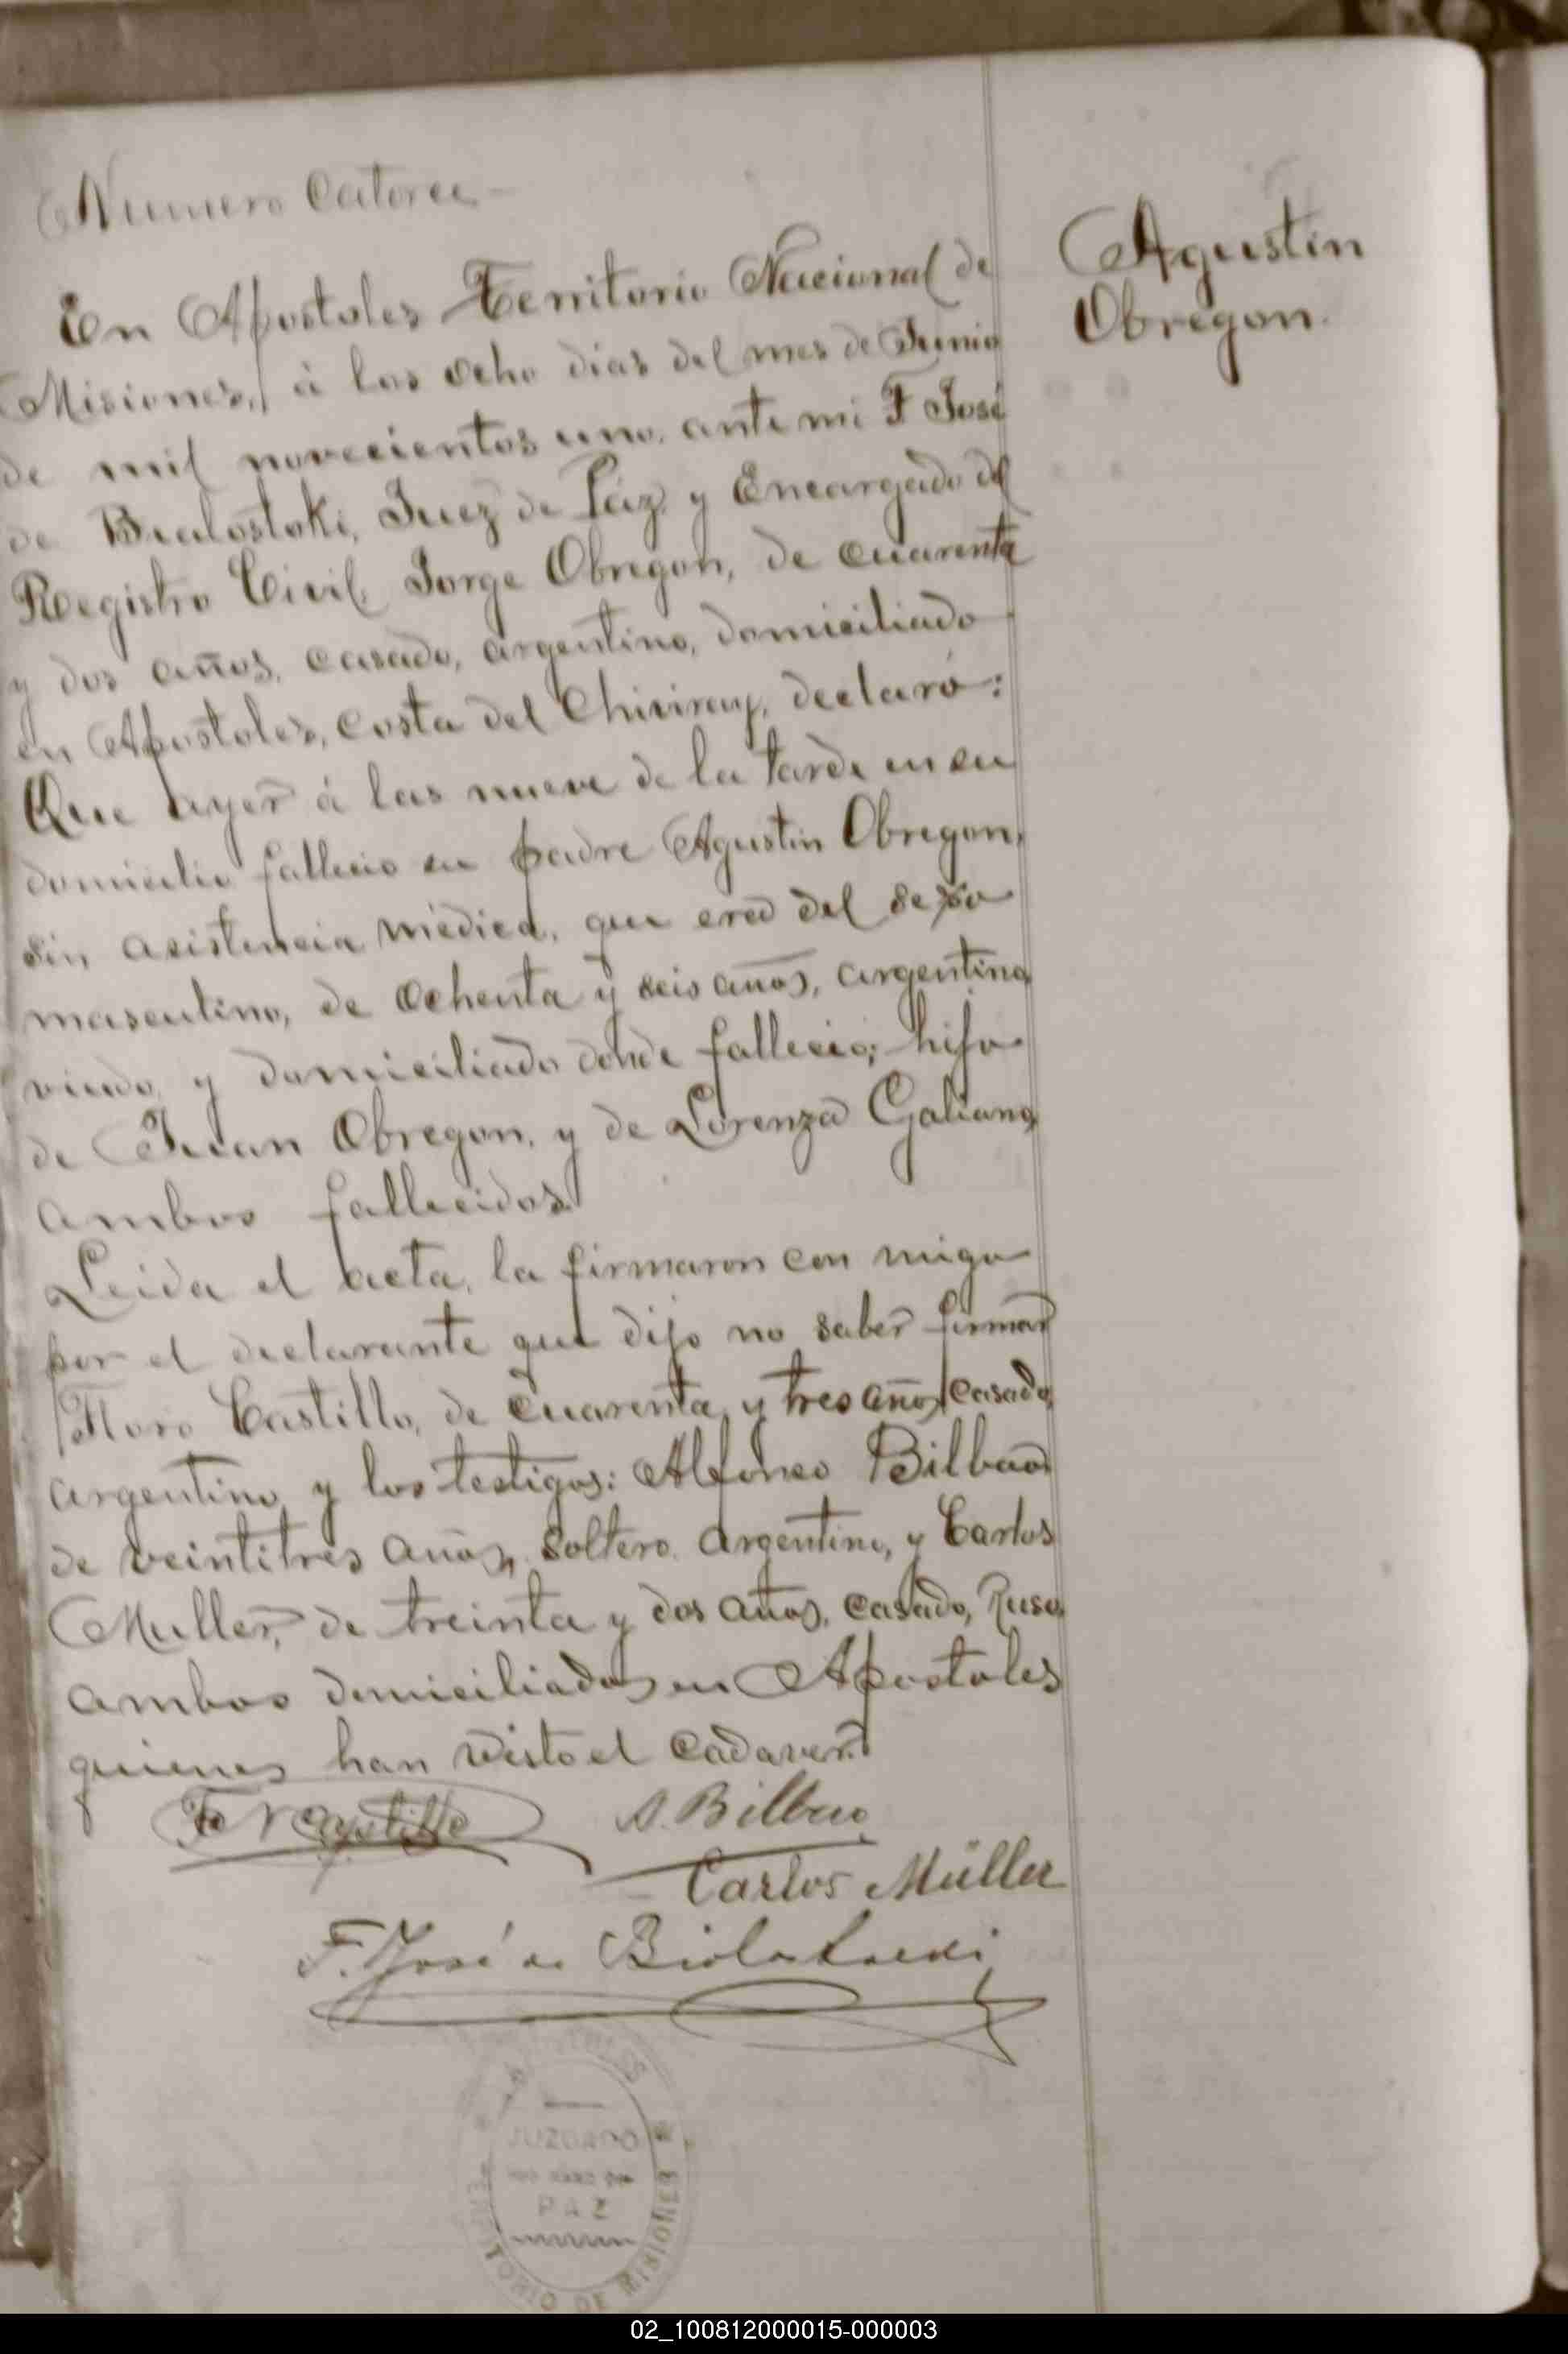 Numero Catorce
Agustin
Obregon.
En Apostoles Territorio Nacional de
Misiones, á los ocho dias del mes de Junio
de mil novecientos uno, ante mi F José
de Bialostoki, Juez de Páz y Encargado del
Registro Civil, Jorge Obregon, de cuarenta
y dos años, casado, argentino, domiciliado
en Apostoles, costa del Chiriray, declaró:
Que ayer á las nueve de la tarde en su
domicilio fallecio su padre Agustin Obregon,
sin asistencia médica, que era del sexo
masculino, de ochenta y seis años, argentino
viudo, y domiciliado donde fallecio; hijo
de Juan Obregon, y de Lorenza Galiano,
ambos fallecidos.
Leida el acta, la firmaron con migo
por el declarante que dijo no saber firmar
Floro Castillo, de cuarenta y tres años, casado,
argentino, y los testigos: Alfonso Bilbao,
de veintitres años, soltero, argentino, y Carlos
Muller, de treinta y dos años, casado, Ruso,
ambos domiciliados en Apostoles
quienes han visto el cadaver.
F Castillo A. Bilbao
Carlos Müller
F. José de
JUZGADO
PAZ
TERRITORIO DE MISIONES
02_100812000015-000003